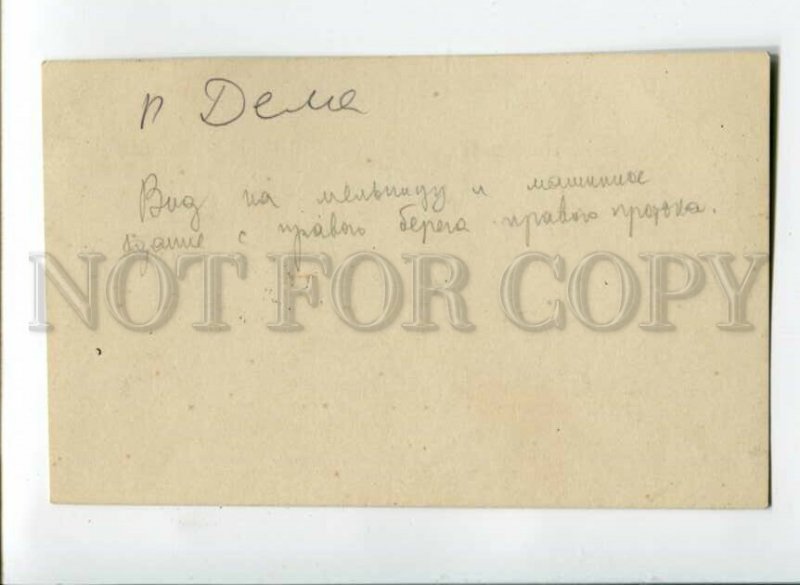 р Дема
Вид на мельницу и машинное
здание с правого берега правого протока.
NOT FOR COPY